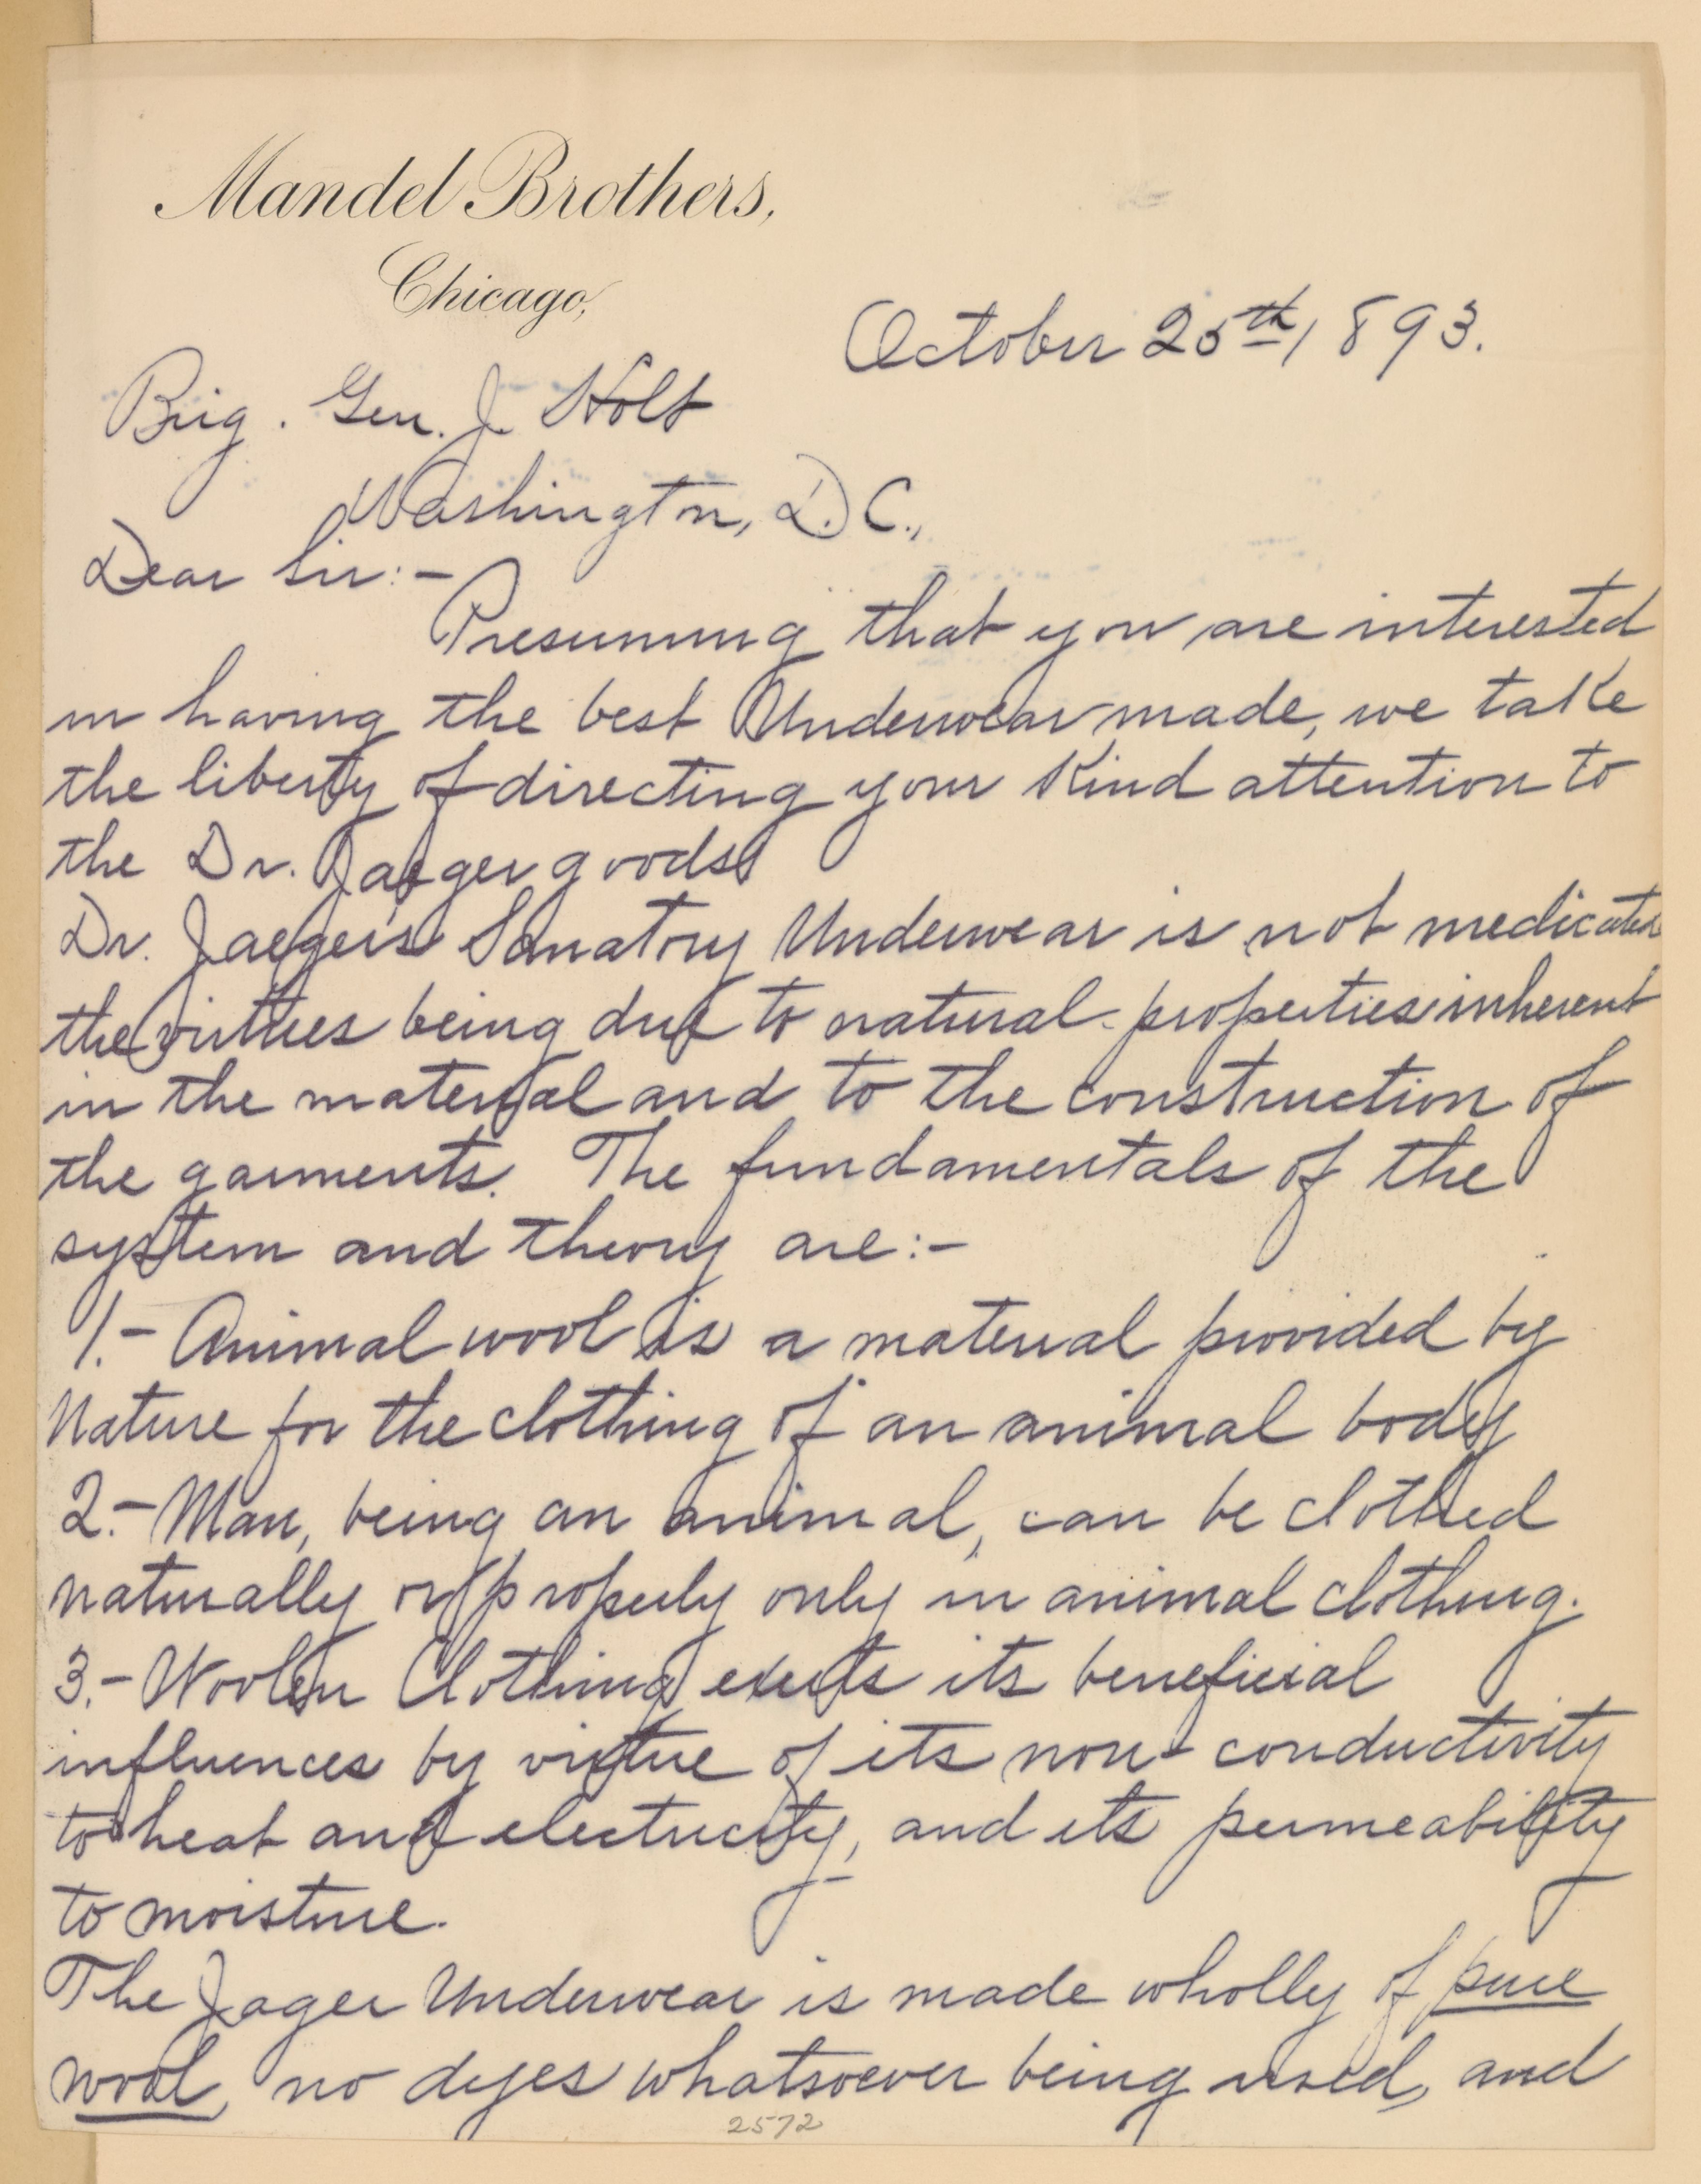 Mandel Brothers,
Chicago,
October 25th, 1893.
Brig. Gen. J. Holt
Washington, D.C.,
Dear Sir:-
Presuming that you are interested
in having the best Underwear made, we take
the liberty of directing your kind attention to
the Dr. Jaeger goods.
Dr. Jaeger's Sanatory Underwear is not medicated
the virtues being due to natural properties inherent
in the material and to the construction of
the garments. The fundamentals of the
system and theory are:-
1.- Animal wool is a material provided by
Nature for the clothing of an animal body
2.- Man, being an animal, can be clothed
naturally or properly only in animal clothing.
3.- Woolen Clothing exerts its beneficial
influences by virtue of its non-conductivity
to heat and electricity, and its permeability
to moisture.
The Jager Underwear is made wholly of pure
wool, no dyes whatsoever being used, and
2572